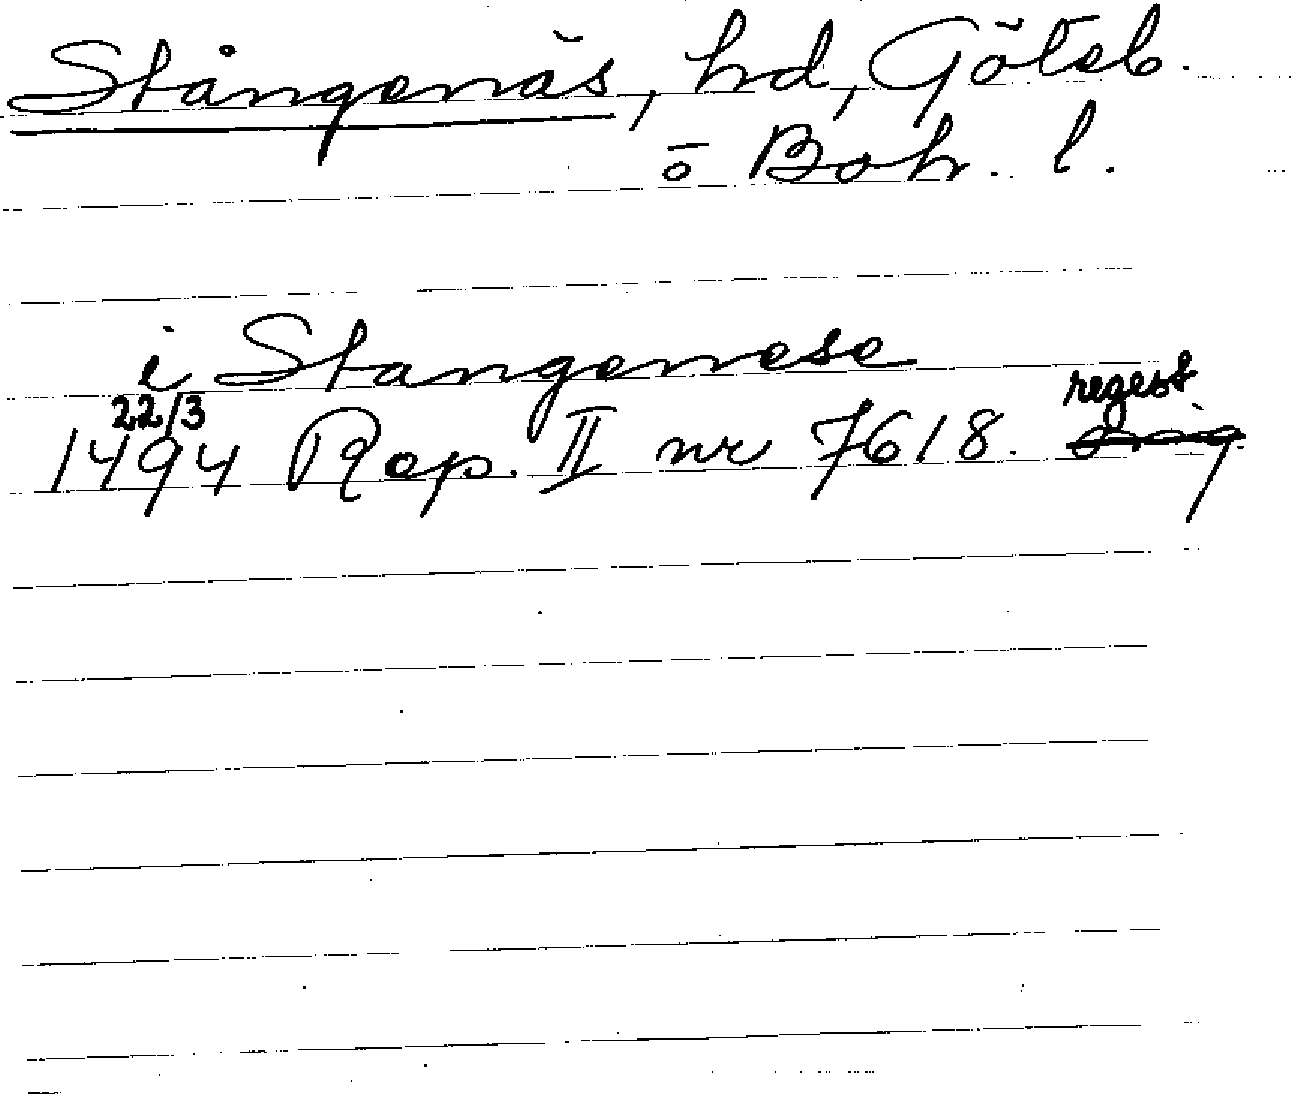 Stångenäs, hd, Göteb.
ö Boh. l.
i Stangenese
22/3
1494 Rep. II nr 7618. regest
orig.